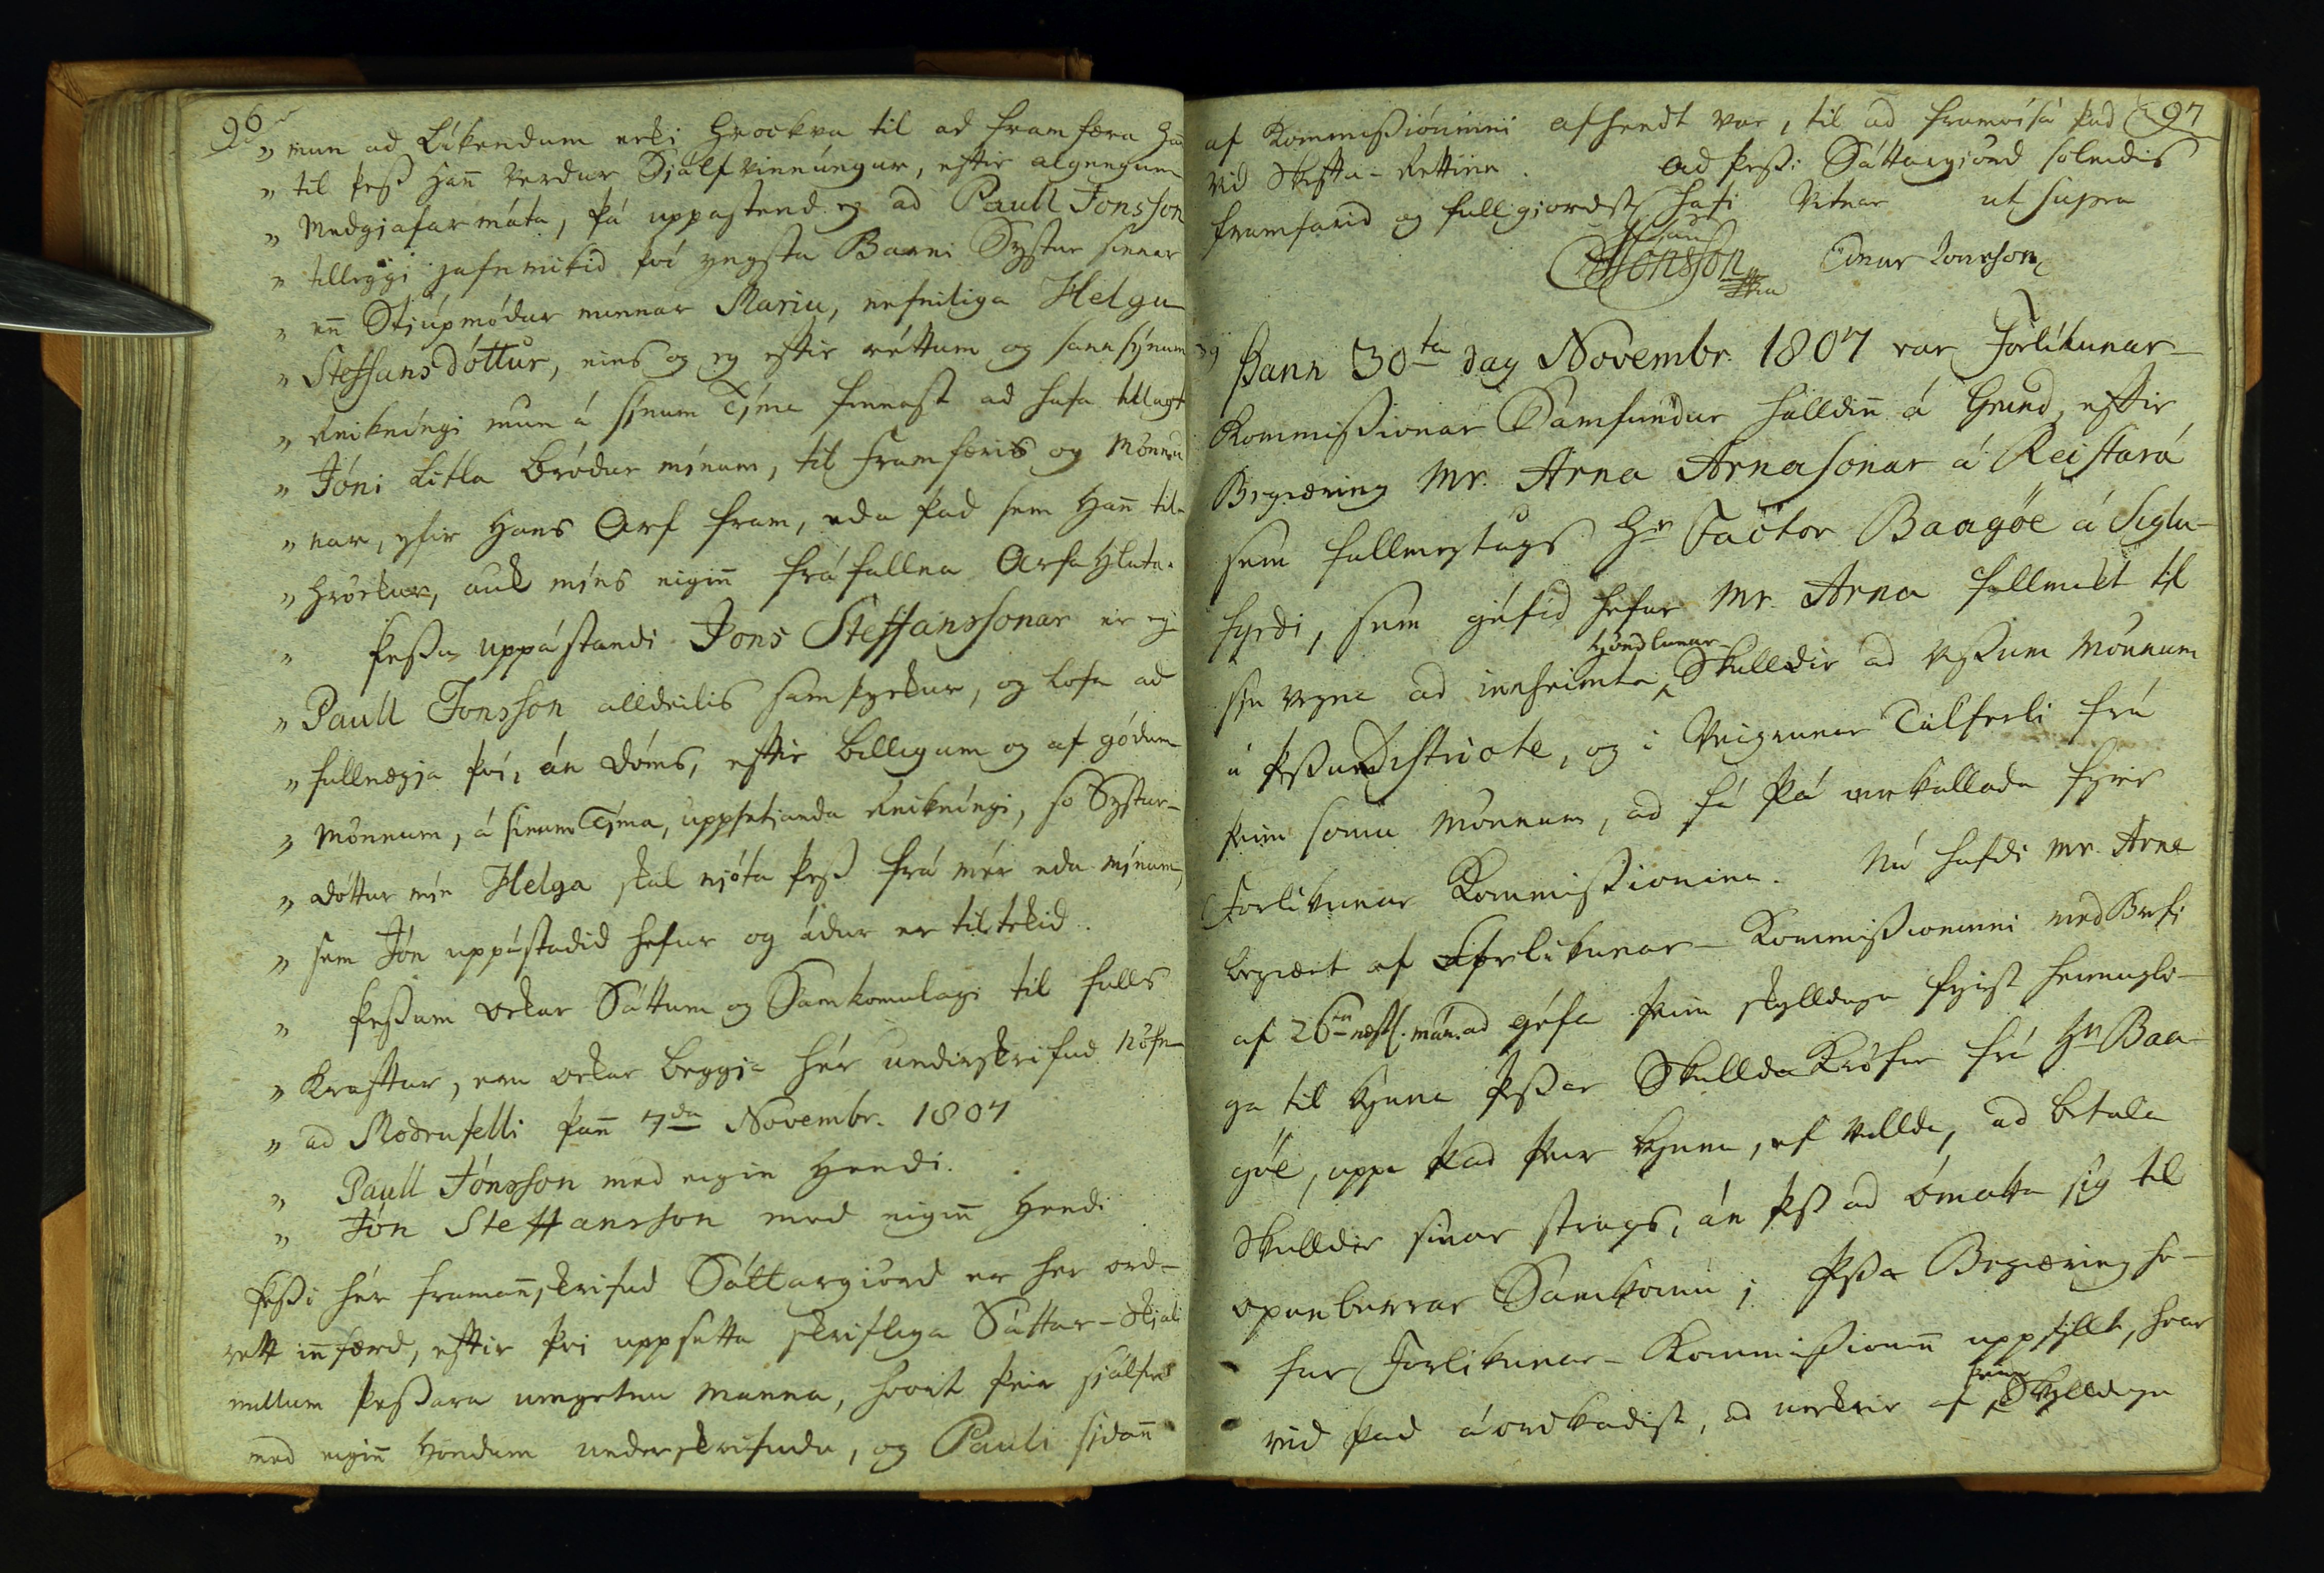 96
„ mun ad Líkendum ecki hrockva til ad framfæra hañ
„ til þess hañ verdur Siálfvinnúngur, eftir algeingum
„ Medgjafar máta, þá uppástend eg ad Paull Jonsson
„ tilleggi jafnmikid því yngsta Barni Systur sinnar
„ eñ Stiúpmódur minnar Mariu, nefniliga Helgu
„ Steffansdóttur, eins og eg eftir réttum og sannsýnum
„ Reikníngi mun á sýnum Týma finnast ad hafa tillagt
„ Jóni Litla Bródur mínum, til Framfæris og Mönnu
„ nar, yfir hans Arf fram, eda það sem hañ til-
„ hröckur, auk míns eigiñ fráfallna Arfahluta.
„ Þessu uppástandi Jons Steffanssonar er eg
„ Paull Jonsson alldeilis samþyckur, og lofa ad
„ fullnægja því, án Dóms, eftir billigum og af gódum
„ Mönnum, á sínum Týma, uppsetianda Reikníngi, so Systur-
„ dóttur mín Helga skal njóta þess frá mér eda mínum,
„ sem Jón uppástadid hefur og ádur er tiltekid.
„ Þessum ockar Sáttum og Samkomulagi til fulls
„ Kraftar, eru ockar beggia hér undirskrifud Nöfn
„ ad Mödrufelli þañ 7da Novembr. 1807
„ Paull Jónsson med eigin Hendi.
„ Jón Steffansson med eigiñ Hendi
Þessi hér framañskrifud Sáttargiörd er hér ord-
rétt iñfærd, eftir því uppsetta skriflega Sáttar-Skiali
millum þessara umgetnu manna, hvört þeir siálfir
med eigiñ Höndum underskrifudu, og Pauli sídañ
97
af Kommissióninni afhendt var, til ad framvísa þad
vid Skifta-Rettinn. Ad þessi Sáttargiörd soleidis
framfarid og fullgiördst hafi Vitnar ut supra
Jonsson Einar Jonsson
39 Þann 30ta dag Novembr. 1807 var Forlíkunar-
Kommissionar Samfundur halldiñ á Grund, eftir
Begiæring Mr. Arna Arnasonar á Reistará
sem fullmegtugs Hr Factor Baagöe á Siglu-
fyrdi, sem géfid hefur Mr. Arna fullmakt til
sín vegna ad innheimta Höndlunar Skulldir ad vissum Mönnum
í þessum Districte, og í Veigrunar Tilfelli frá
þeim somu Mönnum, ad fá þá innkallada fyrir
Forlikunar Kommissionina. Nú hafdi Mr. Arne
begiært af Forlikunar-Kommissioninni med Brefi
af 26ta næstl. mán. ad géfa þeim skylldugu fyrst heimugle-
ga til kynna þessar Skullda Kröfur frá Hr Baa-
göe, uppá þad þeir kynni, ef villdu, ad betala
Skulldir sínar strags, án þess ad ómaka sig til
opinberrar Samkomu; þessa Begiæring he-
fur Forlikunar-Kommissionin uppfillt, hvar
vid þad áorkadist, ad nockrir af þeim Skylldugu